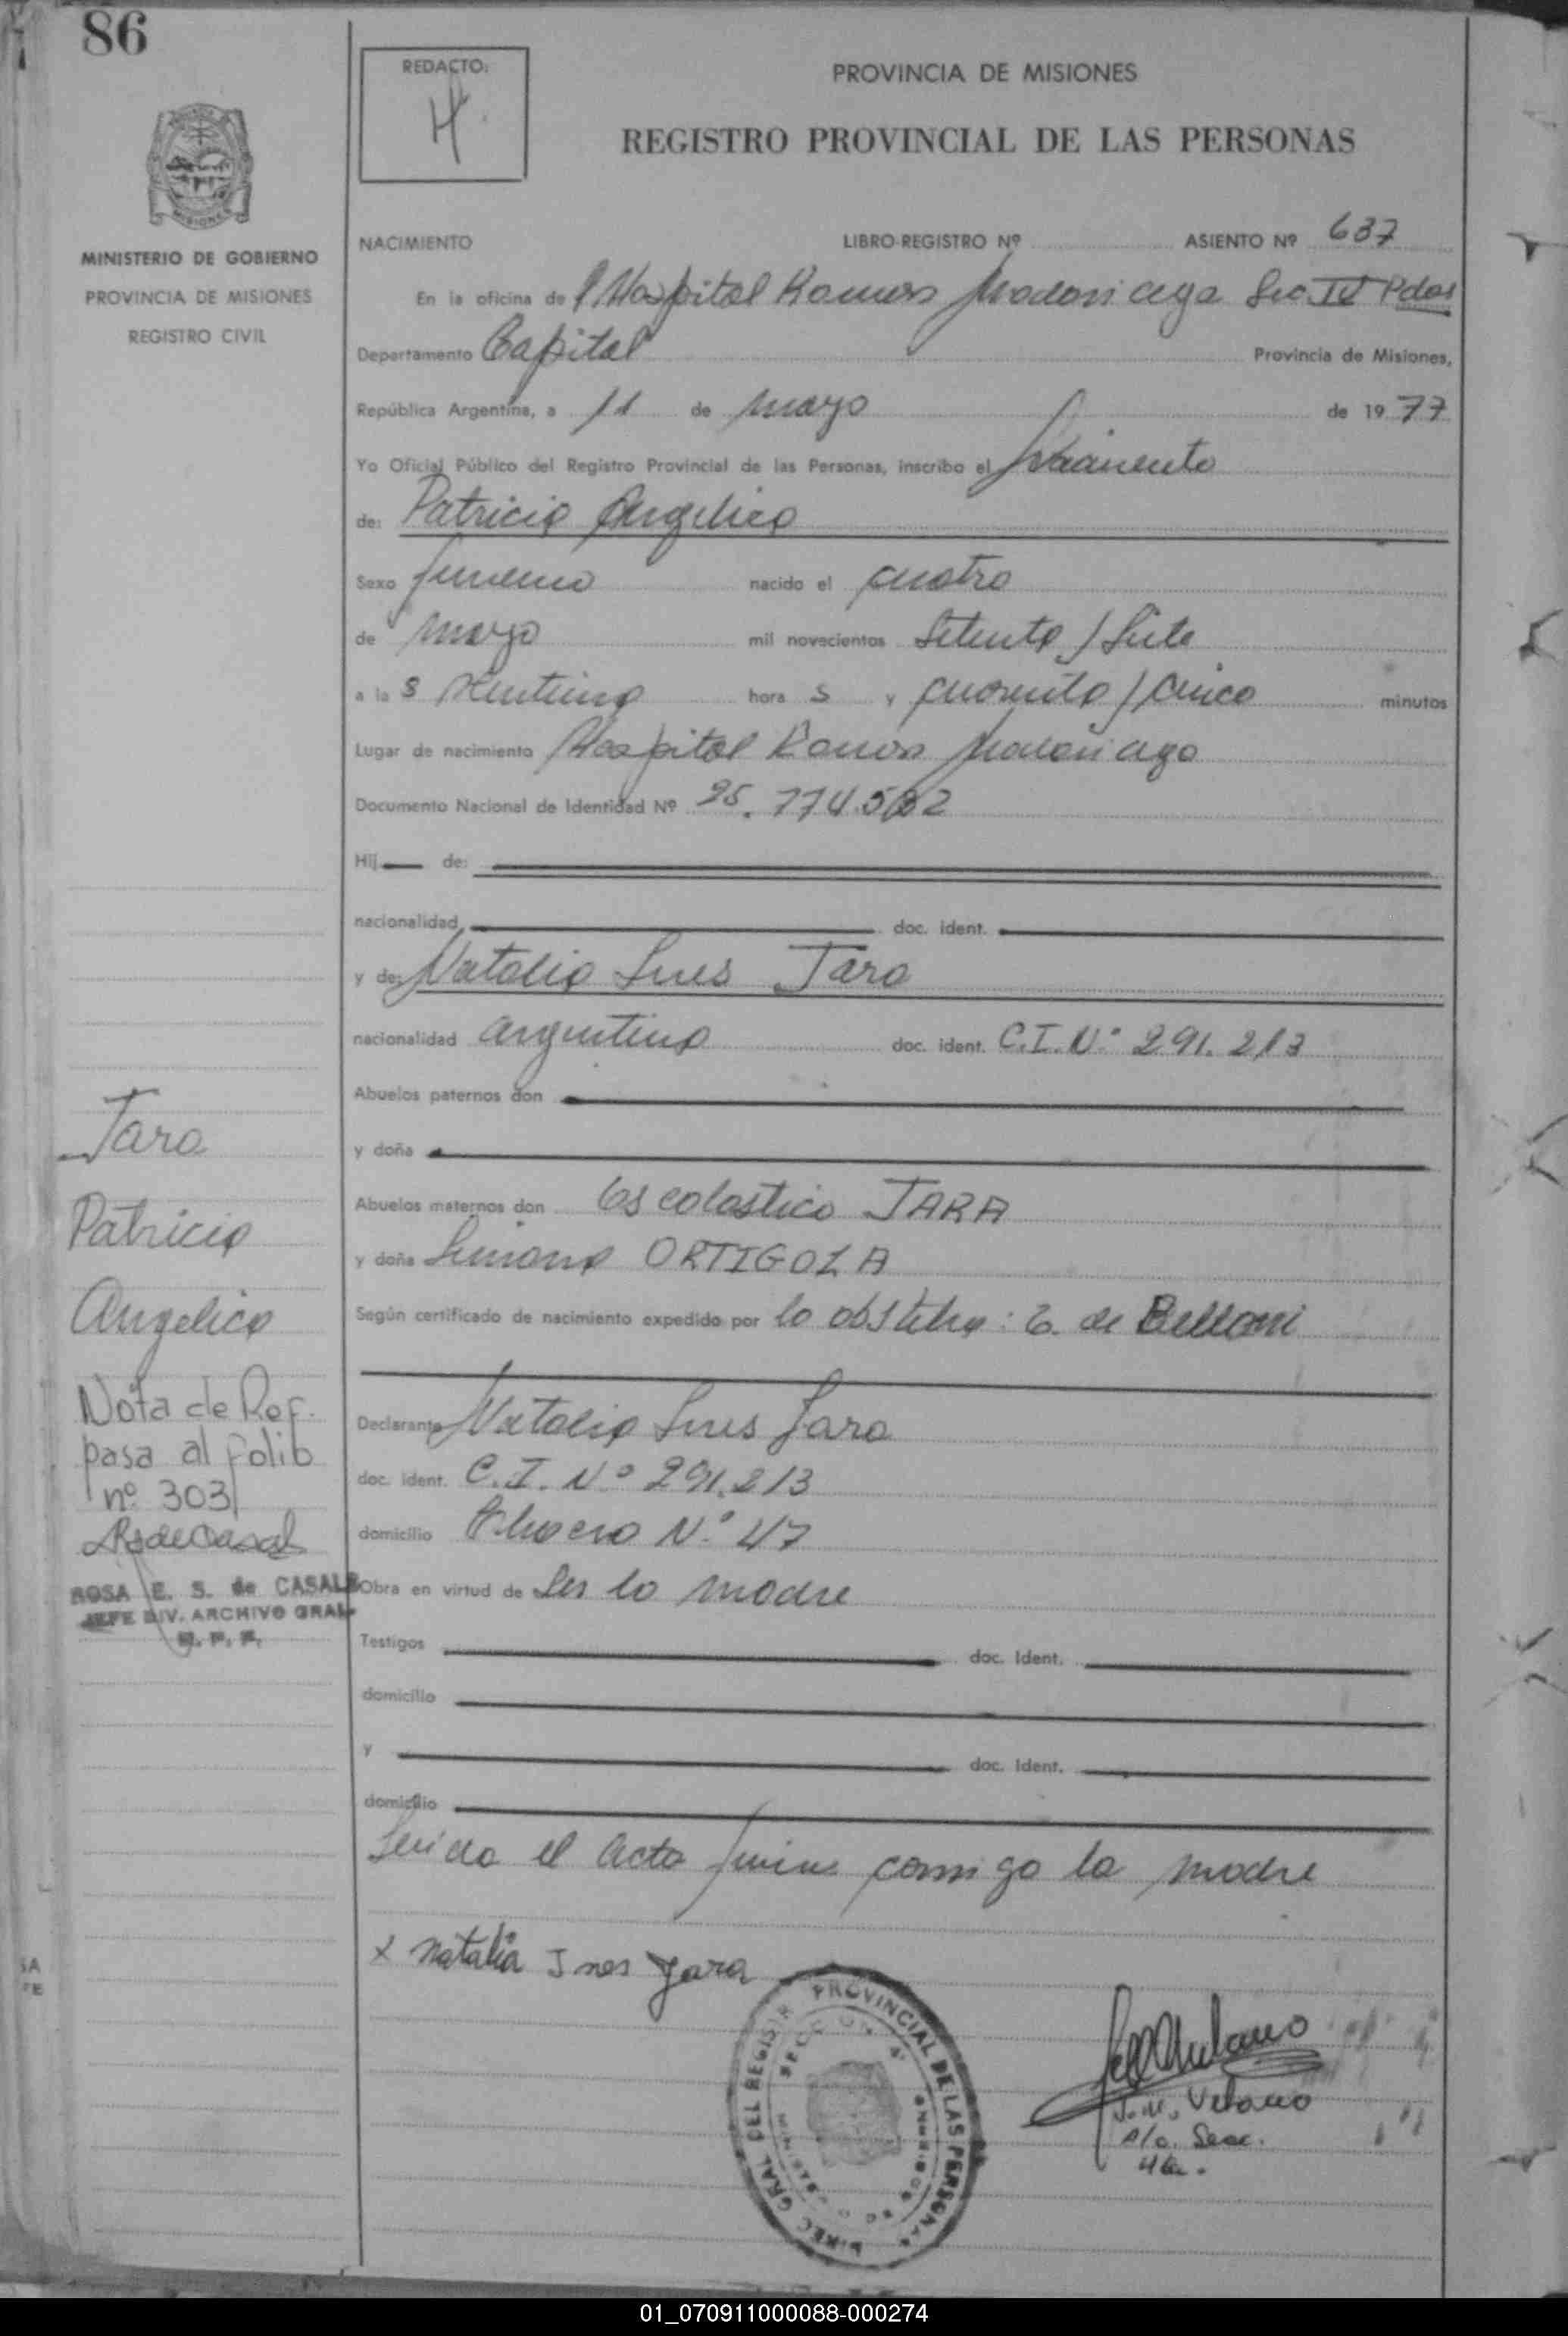 86
REDACTO:
PROVINCIA DE MISIONES
REGISTRO PROVINCIAL DE LAS PERSONAS
MINISTERIO DE GOBIERNO
PROVINCIA DE MISIONES
REGISTRO CIVIL
NACIMIENTO LIBRO-REGISTRO Nº ASIENTO Nº 637
En la oficina del Hospital Ramon Madariaga Sec. IV Pdas
Departamento Capital Provincia de Misiones,
República Argentina, a 11 de mayo de 1977
Yo Oficial Público del Registro Provincial de las Personas, inscribo el Nacimiento
de: Patricia Angelica
Sexo femenino nacido el cuatro
de mayo mil novecientos Setenta / Siete
a las veintiuna horas y cuarenta / cinco minutos
Lugar de nacimiento Hospital Ramon Madariaga
Documento Nacional de Identidad Nº 25.774.5
Hij de:
nacionalidad doc. ident.
y de: Natalia Ines Jara
nacionalidad argentina doc. ident. C.I.Nº 291.213
Abuelos paternos don
y doña
Abuelos maternos don Escolastico JARA
y doña Simona ORTIGOZA
Según certificado de nacimiento expedido por la obstetra: E. de Belloni
Declarante Natalia Ines Jara
doc. ident. C.I. Nº 291.213
domicilio Nº 47
Obra en virtud de Ser la madre
Testigos doc. Ident.
domicilio
y doc. Ident.
domicilio
Leida el acta firma conmigo la madre
x Natalia Ines Jara
Jara
Patricia
Angelica
Nota de Ref.
pasa al folio
nº 303
ROSA E. S. de CASALS
JEFE DIV. ARCHIVO GRAL
R. P. P.
DIREC GRAL DEL REGISTR PROVINCIAL DE LAS PERSONAS
SECCION 4
J.M. Velasco
Secc.
4ta.
01_070911000088-000274